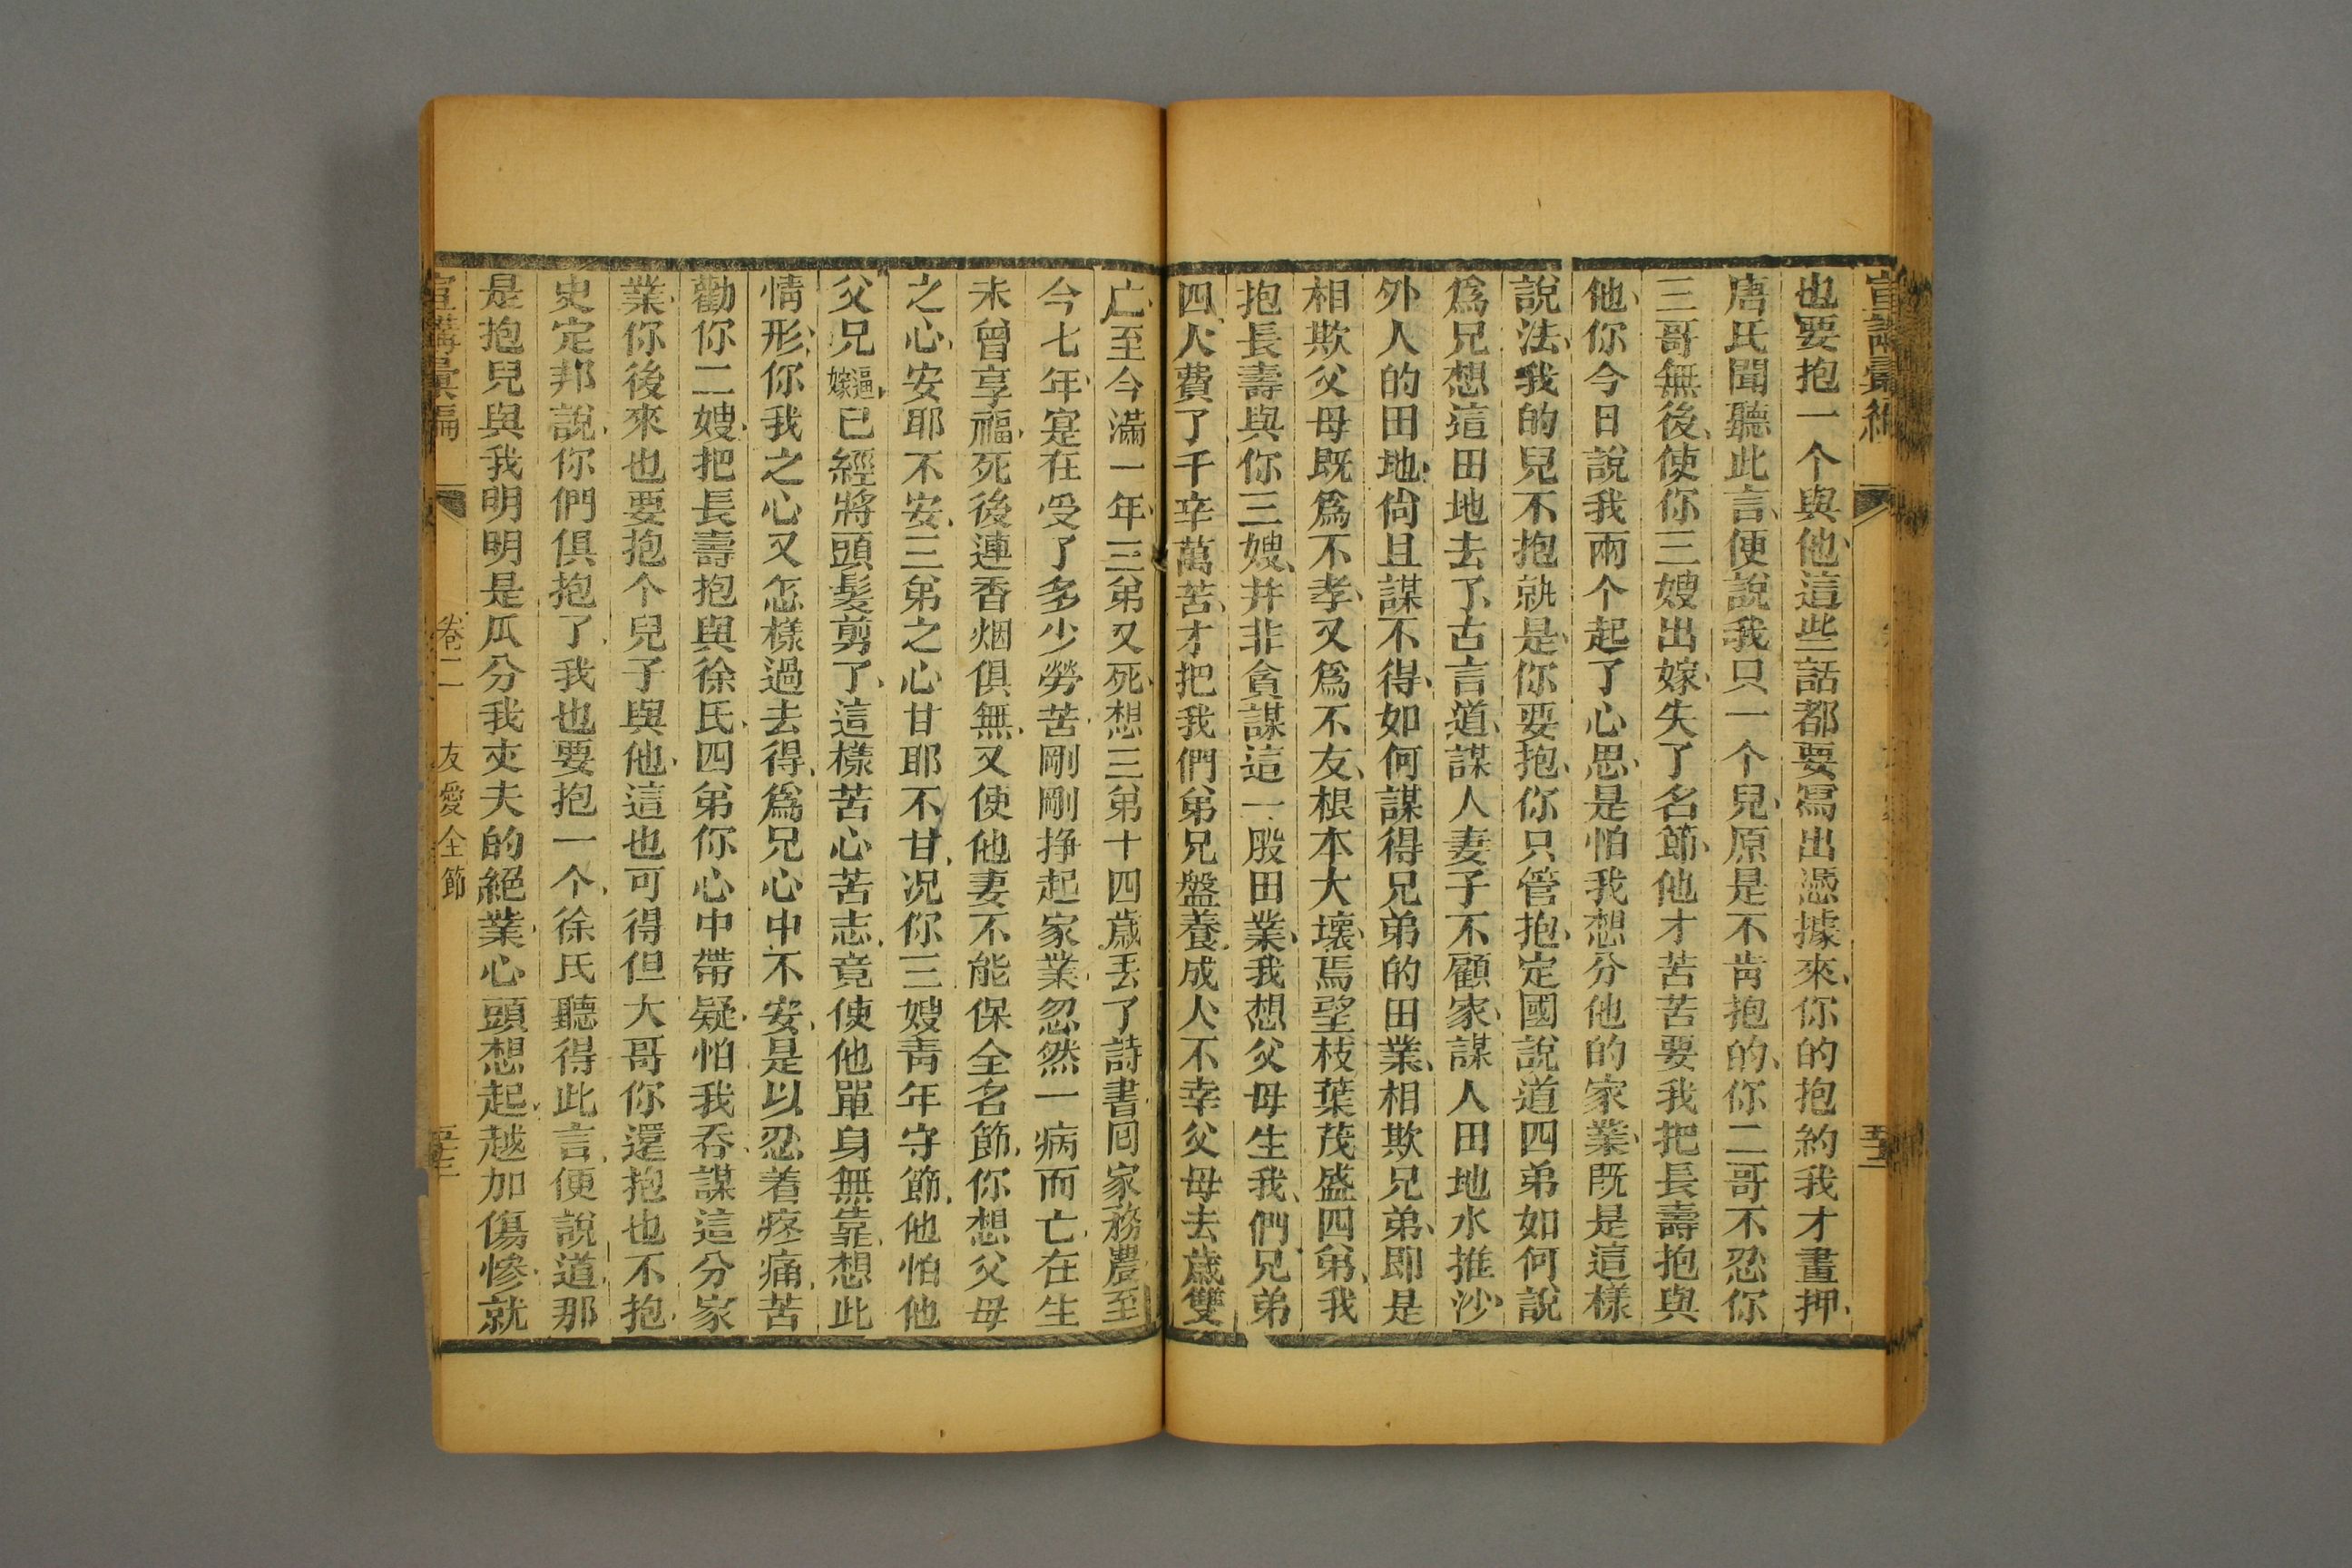 宣講彙編
五十二
也要抱一个與他、這些話都要寫出憑據來、你的抱約我才畫押、
唐氏聞聽此言、便說我只一个兒、原是不肯抱的、你二哥不忍你
三哥無後、使你三嫂出嫁、失了名節、他才苦苦要我把長壽抱與
他、你今日說我兩个起了心思、是怕我想分他的家業、旣是這樣
說法、我的兒不抱就是、你要抱、你只管抱、定國說道四弟如何說
爲兄想這田地去了、古言道、謀人妻子不顧家、謀人田地水推沙、
外人的田地、尙且謀不得、如何謀得兄弟的田業、相欺兄弟、即是
相欺父母旣爲不孝、又爲不友、根本大壞、焉望枝葉茂盛四弟、我
抱長壽與你三嫂、并非貪謀這一股田業、我想父母生我、們兄弟
四人、費了千辛萬苦、才把我們弟兄盤養成人、不幸父母去歲雙
亡、至今滿一年、三弟又死、想三弟十四歲、丟了詩書囘家務農、至
今七年、寔在受了多少勞苦、剛剛掙起家業、忽然一病而亡、在生
未曾享福、死後連香烟俱無、又使他妻不能保全名節、你想父母
之心、安耶不安、三弟之心甘耶不甘、况你三嫂靑年守節、他怕他
父兄逼嫁、已經將頭髮剪了、這樣苦心苦志、竟使他單身無靠、想此
情形、你我之心又怎樣過去得、爲兄心中不安、是以忍着疼痛、苦
勸你二嫂、把長壽抱與徐氏、四弟你心中帶疑、怕我吞謀這分家
業、你後來也要抱个兒子與他、這也可得但大哥你還抱也不抱、
史定邦說、你們俱抱了、我也要抱一个、徐氏聽得此言、便說道、那
是抱兒與我明明是瓜分我丈夫的絕業、心頭想起、越加傷慘、就
宣講彙編
卷二
友愛全節
五十三